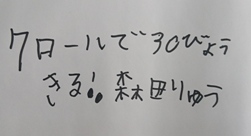 クロールで30びょう
きる!。森田りゅう